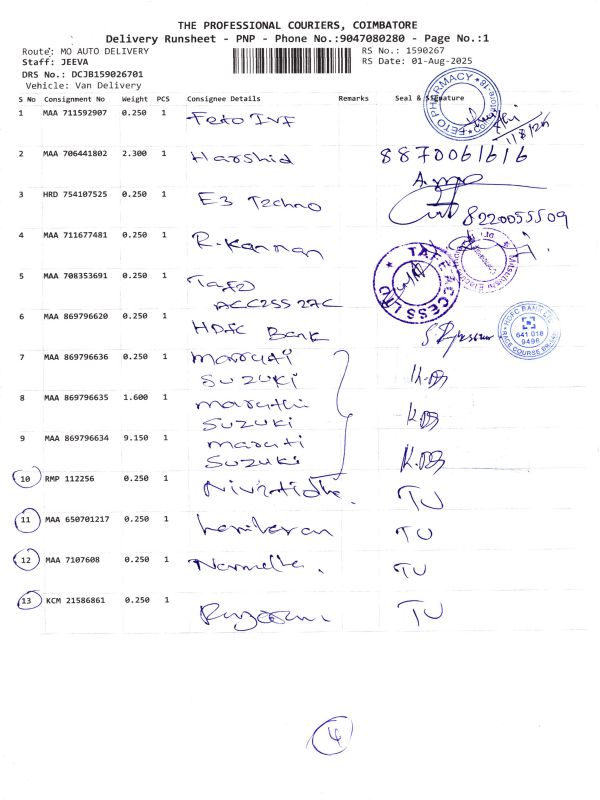 THE PROFESSIONAL COURIERS, COIMBATORE
Delivery Runsheet - PNP - Phone No.:9047080280 - Page No.:1
Route: MO AUTO DELIVERY RS No.: 1590267
Staff: JEEVA RS Date: 01-Aug-2025
DRS No.: DCJB159026701
Vehicle: Van Delivery
S No Consignment No Weight PCS Consignee Details Remarks Seal & Signature
1 MAA 711592907 0.250 1 Feto IVF
FETO PHARMACY
1/8/25
2 MAA 706441802 2.300 1 Harshid 8870061616
3 HRD 754107525 0.250 1 E3 Techno 8220055509
4 MAA 711677481 0.250 1 R. Kannan
5 MAA 708353691 0.250 1 Tafe
Access 27C
TAFE ACCESS LTD
6 MAA 869796620 0.250 1 HDFC Bank
HDFC BANK LTD
641 018
9498
RACE COURSE
7 MAA 869796636 0.250 1 maruti
SUZUKI
8 MAA 869796635 1.600 1 maruthi
SUZUKI
9 MAA 869796634 9.150 1 maruti
SUZUKI
10 RMP 112256 0.250 1 TU
11 MAA 650701217 0.250 1 TU
12 MAA 7107608 0.250 1 TU
13 KCM 21586861 0.250 1 TU
4